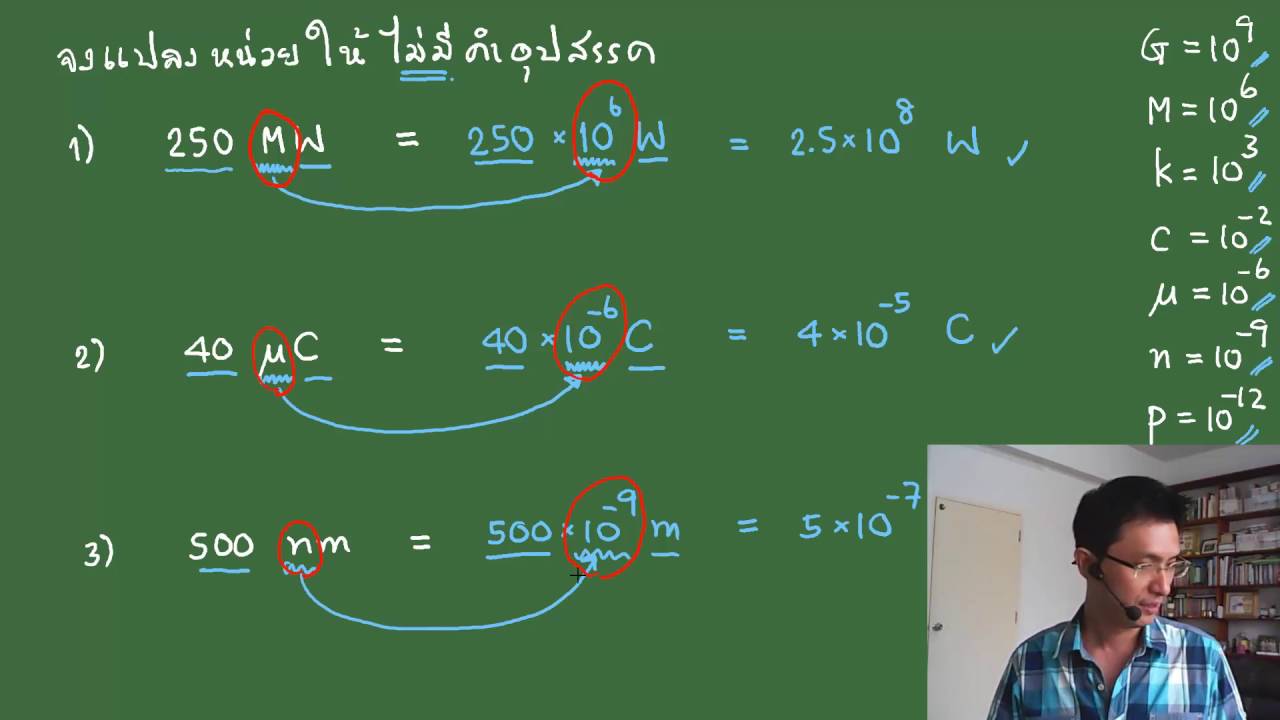 จงแปลงหน่วยให้ไม่มีคำอุปสรรค
1) 250 MW = 250 × 10⁶ W = 2.5 × 10⁸ W ✓
2) 40 μC = 40 × 10⁻⁶ C = 4 × 10⁻⁵ C ✓
3) 500 nm = 500 × 10⁻⁹ m = 5 × 10⁻⁷
G = 10⁹
M = 10⁶
k = 10³
c = 10⁻²
μ = 10⁻⁶
n = 10⁻⁹
p = 10⁻¹²